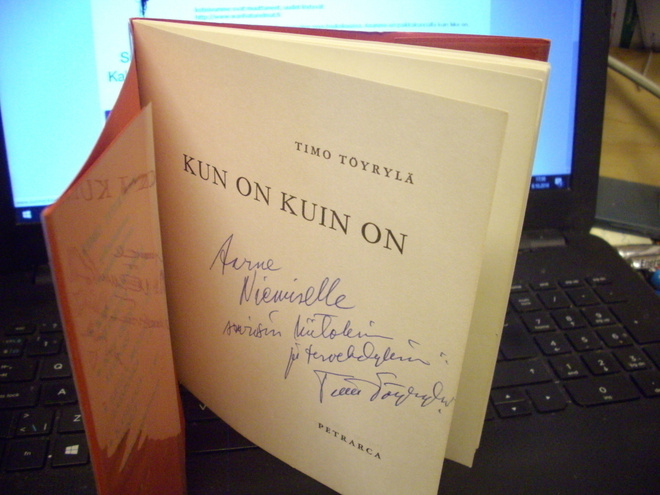 TIMO TÖYRYLÄ
KUN ON KUIN ON
Aarne
Niemiselle
suurin kiitoksin
ja tervehdyksin
Timo Töyrylä
PETRARCA